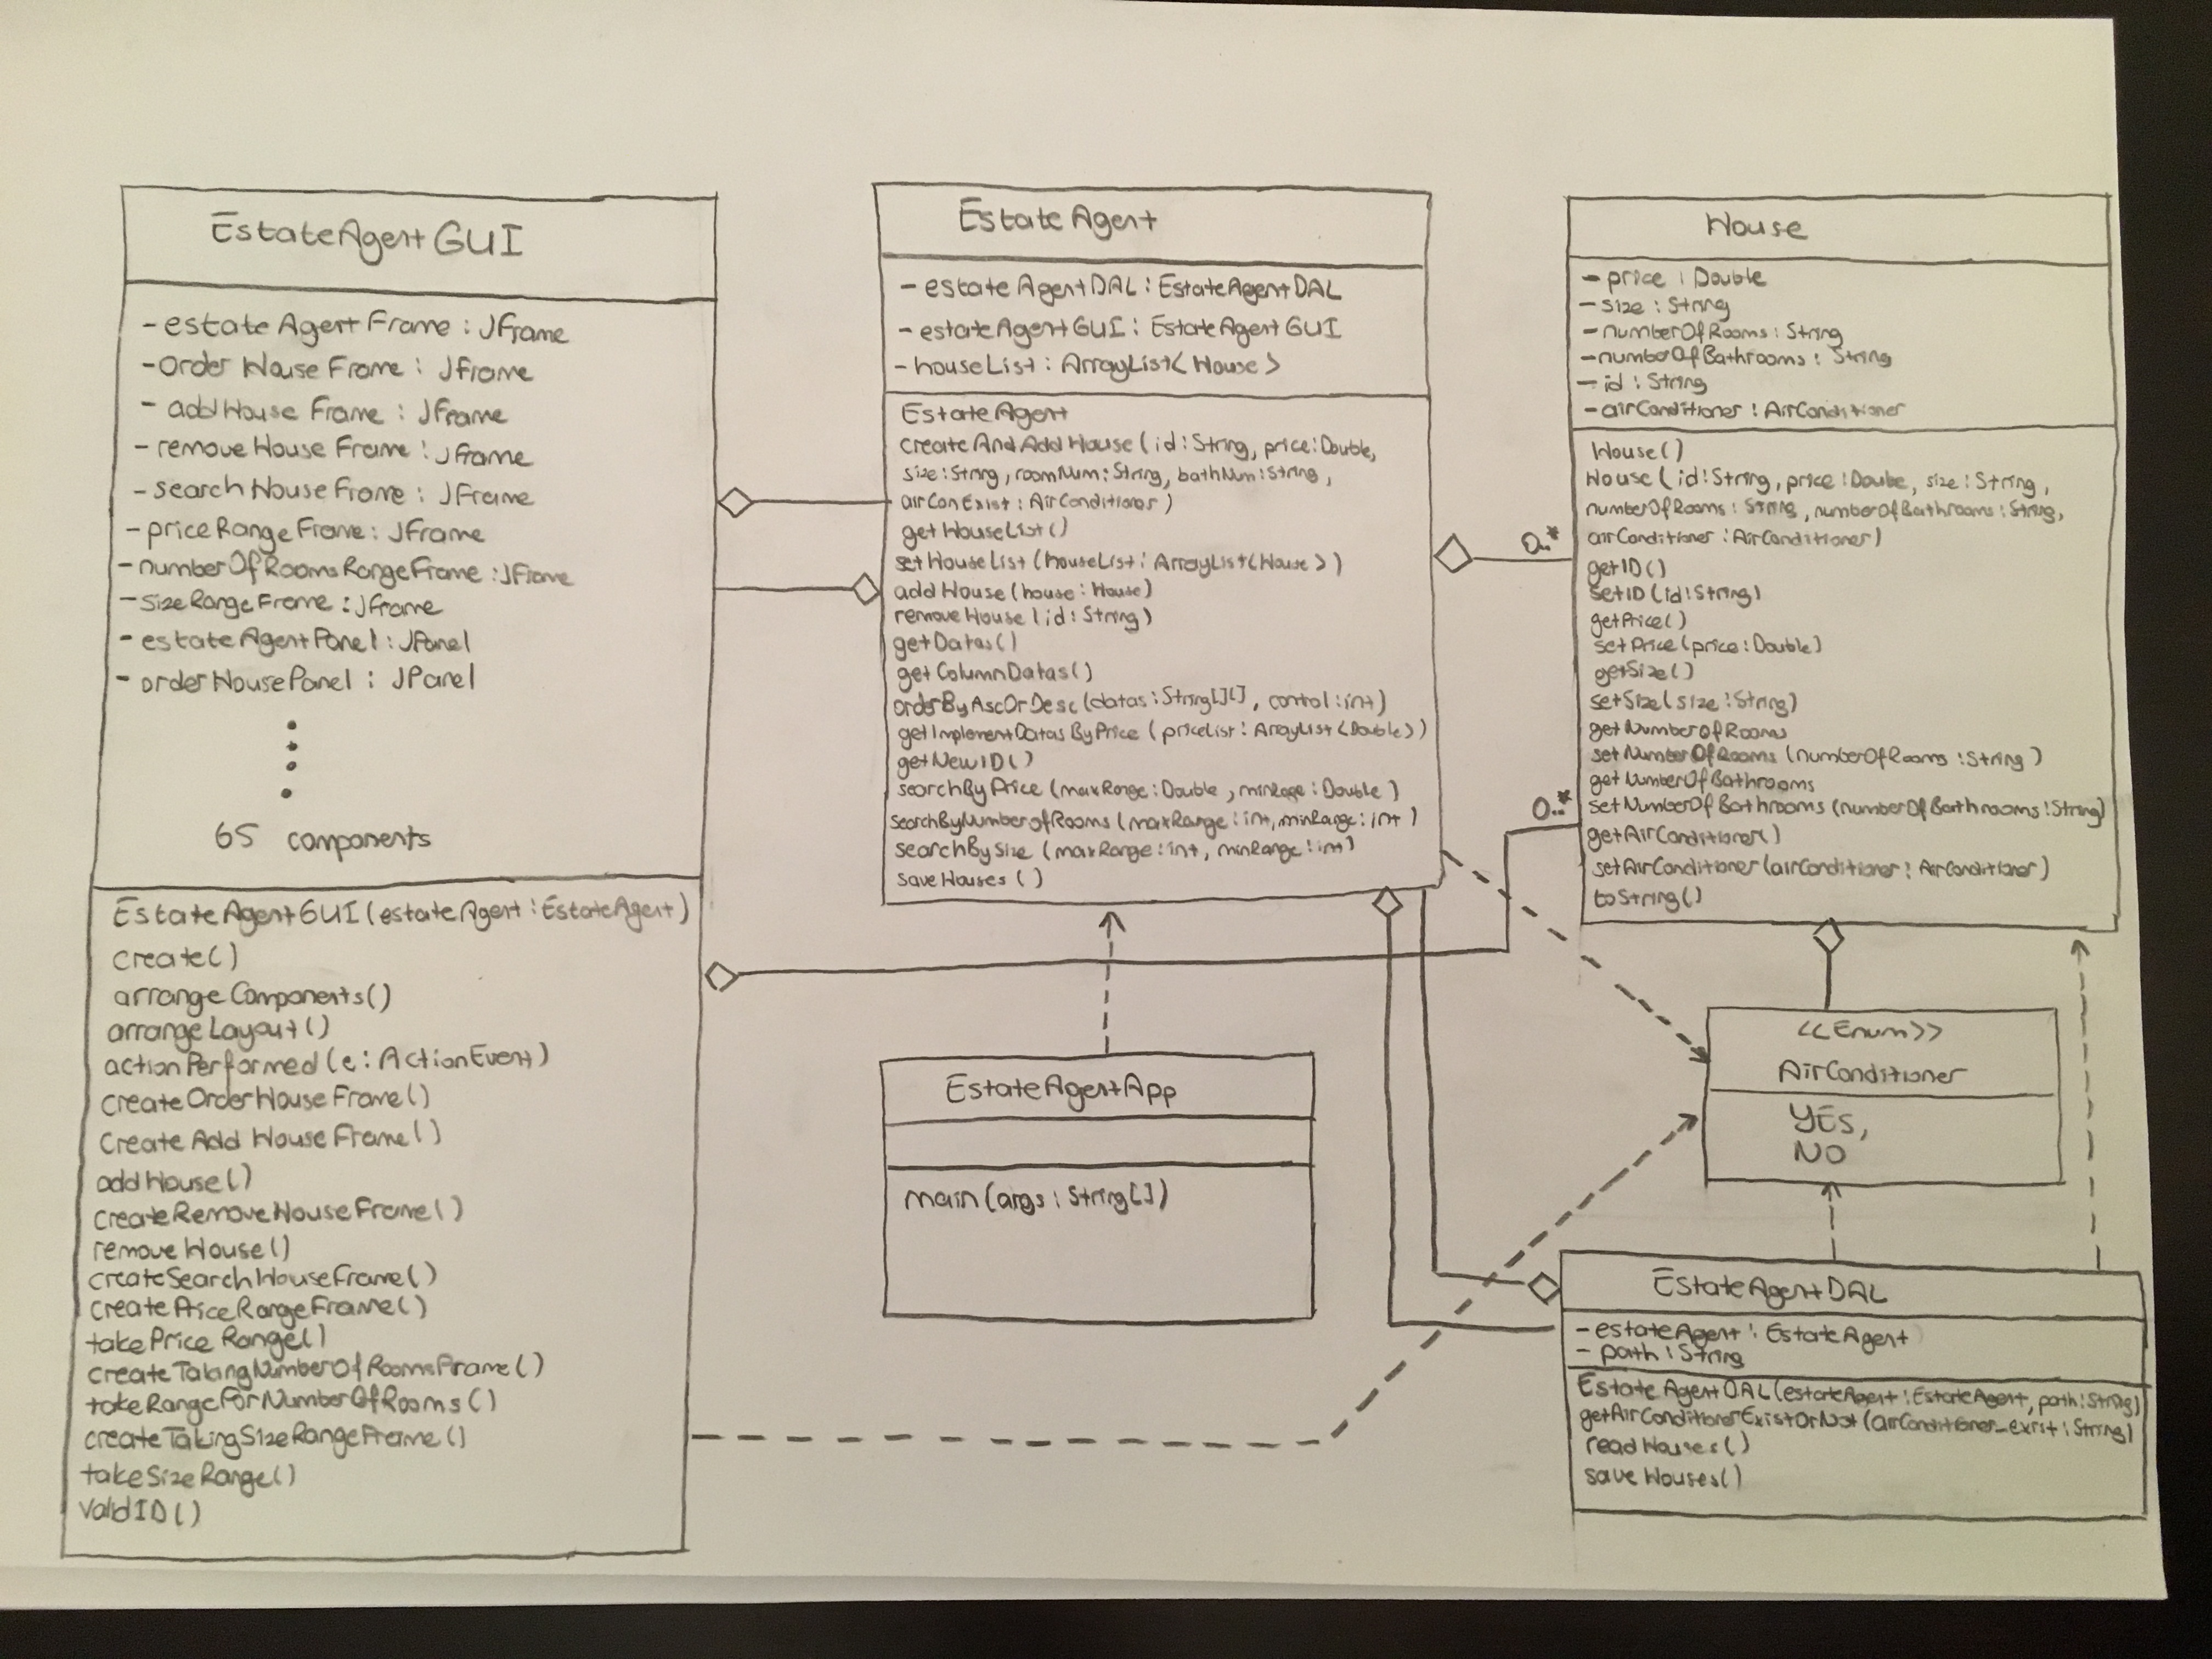 EstateAgentGUI
-estateAgentFrame : JFrame
-OrderHouseFrame : JFrame
- addHouseFrame : JFrame
- removeHouseFrame : JFrame
-searchHouseFrame : JFrame
-priceRangeFrame : JFrame
-numberOfRoomsRangeFrame : JFrame
-sizeRangeFrame : JFrame
- estateAgentPanel : JPanel
- orderHousePanel : JPanel
65 components
EstateAgentGUI(estateAgent : EstateAgent)
create()
arrangeComponents()
arrangeLayout()
actionPerformed(e : ActionEvent)
createOrderHouseFrame()
createAddHouseFrame()
addHouse()
createRemoveHouseFrame()
removeHouse()
createSearchHouseFrame()
createPriceRangeFrame()
takePriceRange()
createTakingNumberOfRoomsFrame()
takeRangeForNumberOfRooms()
createTakingSizeRangeFrame()
takeSizeRange()
validID()
EstateAgent
- estateAgentDAL : EstateAgentDAL
- estateAgentGUI : EstateAgentGUI
- houseList : ArrayList<House>
EstateAgent
createAndAddHouse(id : String, price : Double,
size : String, roomNum : String, bathNum : String,
airConExist : AirConditioner)
getHouseList()
setHouseList(houseList : ArrayList<House>)
addHouse(house : House)
removeHouse(id : String)
getDatas()
getColumnDatas()
orderByAscOrDesc(datas : String[][], control : int)
getImplementDatasByPrice(priceList : ArrayList<Double>)
getNewID()
searchByPrice(maxRange : Double, minRage : Double)
searchByNumberOfRooms(maxRange : int, minRange : int)
searchBySize(maxRange : int, minRange : int)
saveHouses()
EstateAgentApp
main(args : String[])
House
- price : Double
- size : String
- numberOfRooms : String
-numberOfBathrooms : String
- id : String
-airConditioner : AirConditioner
House()
House(id : String, price : Double, size : String,
numberOfRooms : String, numberOfBathrooms : String,
airConditioner : AirConditioner)
getID()
setID(id : String)
getPrice()
setPrice(price : Double)
getSize()
setSize(size : String)
getNumberOfRooms
setNumberOfRooms(numberOfRooms : String)
getNumberOfBathrooms
setNumberOfBathrooms(numberOfBathrooms : String)
getAirConditioner()
setAirConditioner(airConditioner : AirConditioner)
toString()
0..*
0..*
<<Enum>>
AirConditioner
YES,
NO
EstateAgentDAL
- estateAgent : EstateAgent
- path : String
EstateAgentDAL(estateAgent : EstateAgent, path : String)
getAirConditionerExistOrNot(airConditioner_exist : String)
readHouses()
saveHouses()